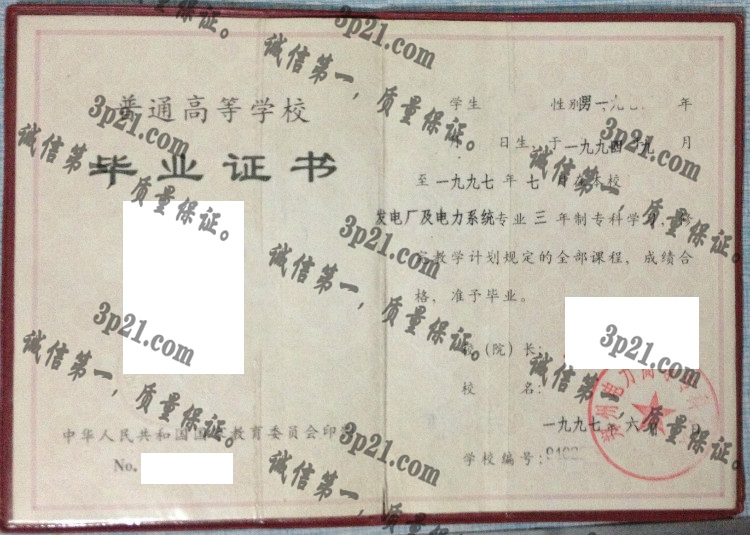 普通高等学校
毕业证书
中华人民共和国国 教育委员会印制
No.
学生 性别男一九七 年
日生,于一九九四 九 月
至一九九七年七 在本校
发电厂及电力系统专业三年制专科学习,
教学计划规定的全部课程,成绩合
格,准予毕业。
(院)长:
校 名:
一九九七年六 日
学校编号:
郑州电力高等
3p21.com
诚信第一,质量保证。
3p21.com
诚信第一,质量保证。
3p21.com
诚信第一,质量保证。
3p21.com
诚信第一,质量保证。
3p21.com
诚信第一,质量保证。
3p21.com
诚信第一,质量保证。
3p21.com
诚信第一,质量保证。